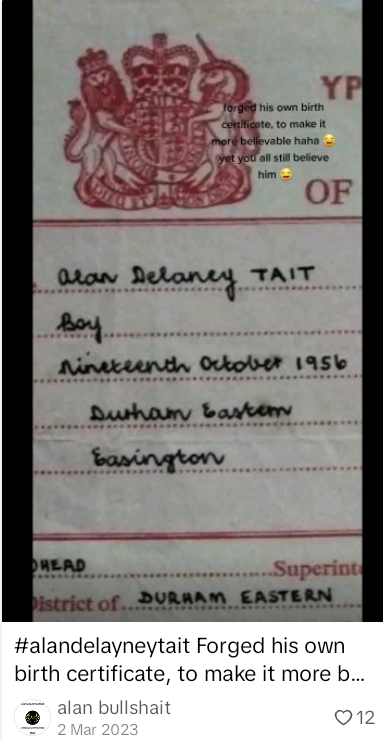 YP
forged his own birth
certificate, to make it
more believable haha 😂
yet you all still believe
him 😂
OF
alan Delaney TAIT
Boy
nineteenth October 1956
Durham Eastern
Easington
HEAD
Superint
District of DURHAM EASTERN
#alandelayneytait Forged his own
birth certificate, to make it more b...
alan bullshait
2 Mar 2023
12